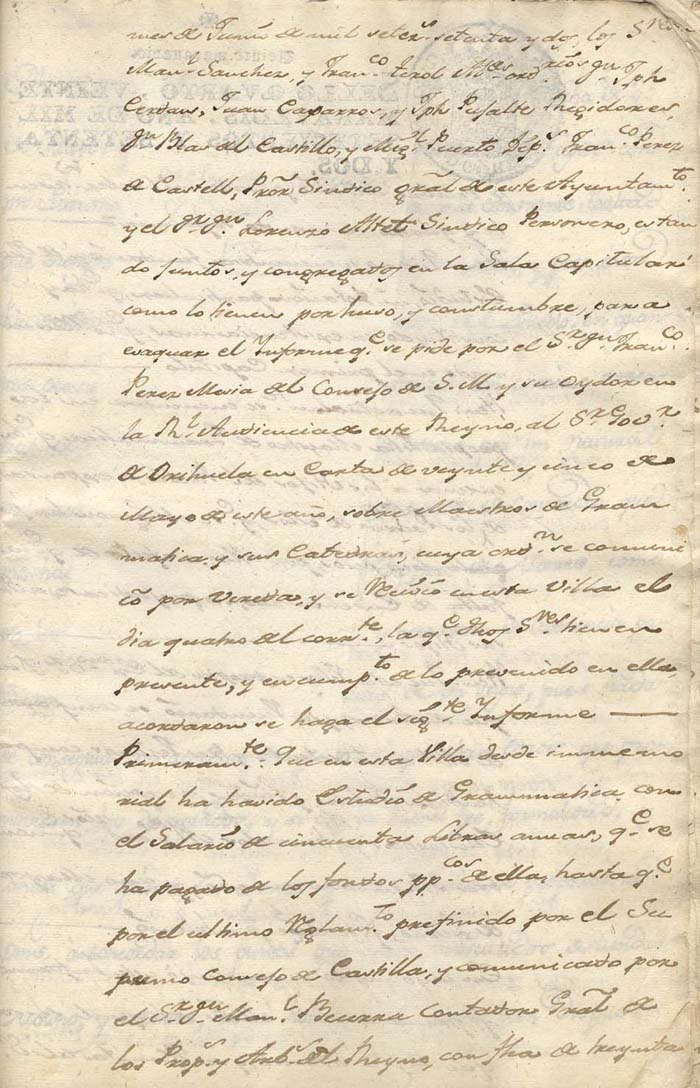 mes de Junio de mil setecs. setenta y dos, los Sres.
Manl. Sanchez, y Franco. terol Alces. ordrios, Jph
Cerdan, Juan Caparros, y Jph Pujalte Regidores,
Dn. Blas del Castillo, y Migl. Puerto Dips. Franco. Perez
de Castell, Pror. Sindico gral de este Ayuntamto.
y el Dr. Dn. Lorenzo Altet Sindico Personero, estan
do juntos, y congregados en la Sala Capitular
como lo tienen por huso, y constumbre, para
evaquar el Informe qe. se pide por el Sr. Dn. Franco.
Perez Mesia del Consejo de S. M. y su Oydor en
la Rl. Audiencia de este Reyno, al Sr. Govr.
de Orihuela en Carta de veynte y cinco de
Mayo de este año, sobre Maestros de Gram
matica, y sus Catedras, cuya ordn. se comuni
có por Vereda, y se Recivió en esta Villa el
dia quatro del corrte., la qe. dhos Sres. tienen
presente, y en cumpto. de lo prevenido en ella,
acordaron se haga el sigte. Informe —
Primeramte. Que en esta Villa desde immemo
rial ha havido Estudio de Grammatica con
el Salario de cincuenta Libras anuas, qe. se
ha pagado de los fondos ppcos. de ella, hasta qe.
por el ultimo Reglamto. prefinido por el Su
premo Consejo de Castilla, y comunicado por
el Sr. Dn. Manl. Becerra Contador Gral de
los Props. y Arbs. del Reyno, con fha de treynta